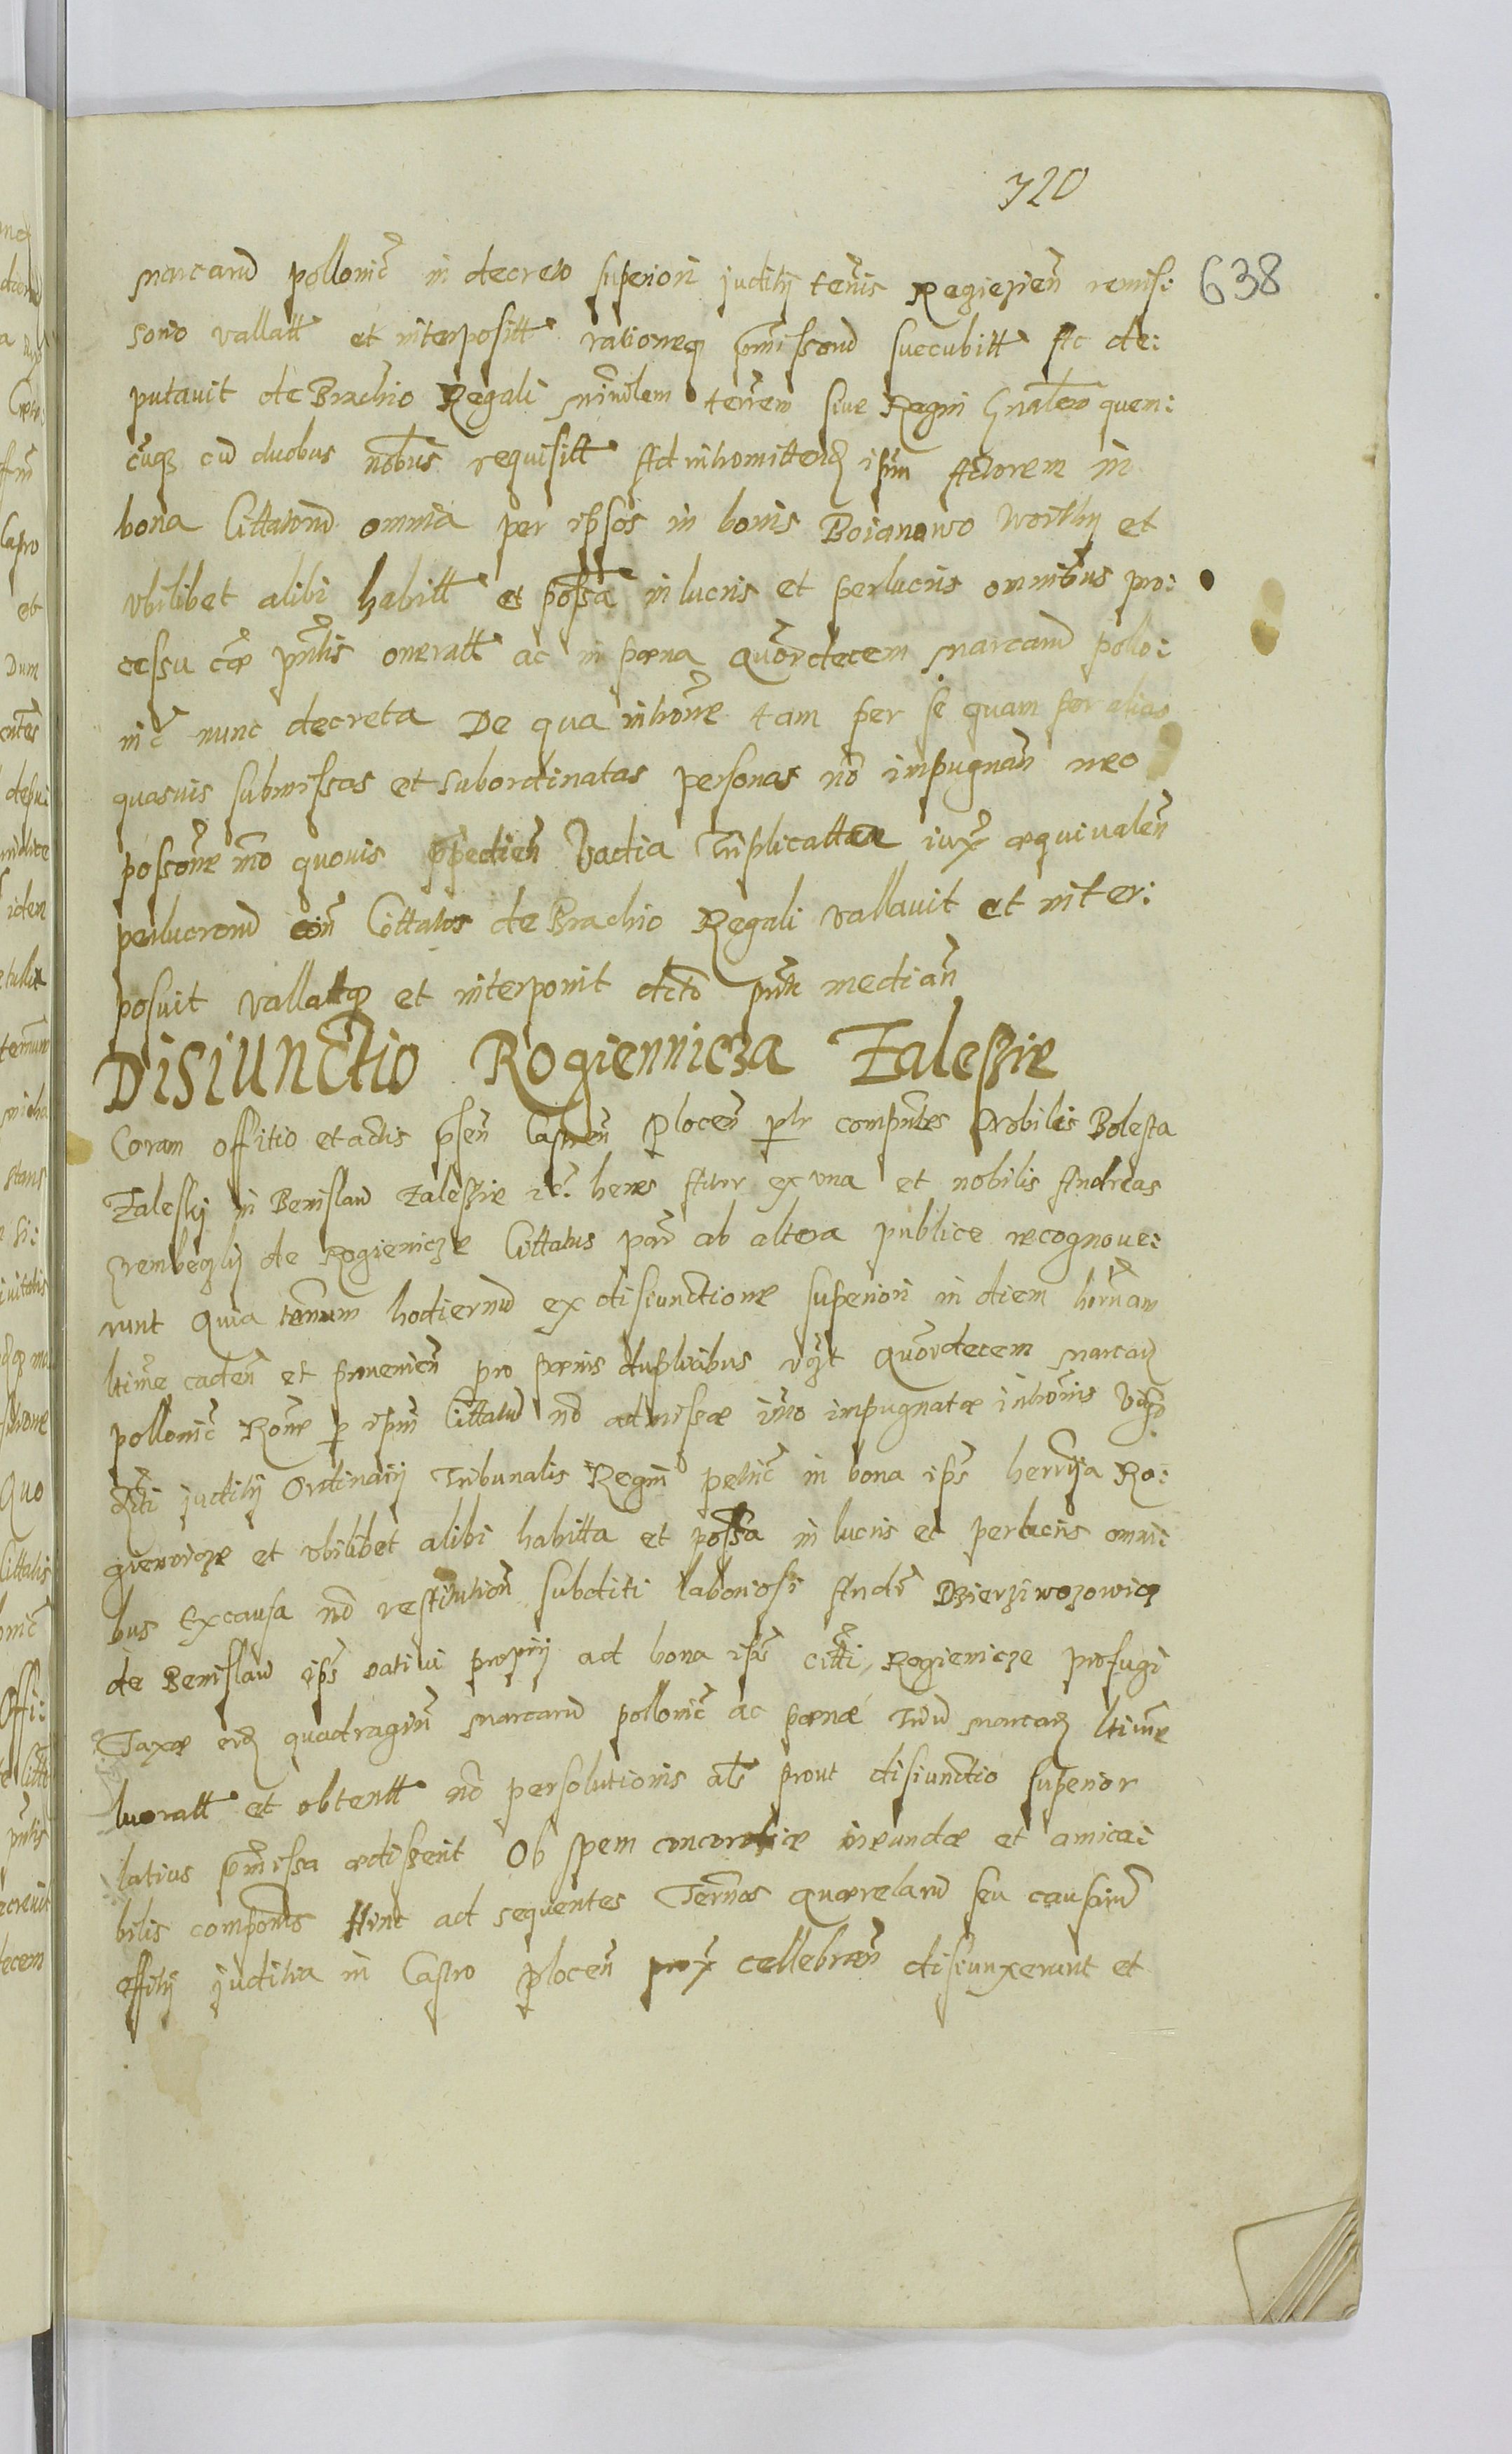 720
638
marcarum pollonic̃ in decreto superiori juditij terñis Regiezien̄ remis:
sorio vallatt et interpositt rationeq p̄missorum succubitt Ac de:
putavit de Brachio Regali min̄rlem terr̃em sive Regni Gñalem quem:
cunq cũ duobus nobus requisitt Ad intromittend ipm̄ Actorem in
bona Cittatorum omnia per ipsos in bonis Boianowo Woithy et
ubilibet alibi habitt et possa in lucris et perlucris omnibus pro:
cessu cae pñtis oneratt ac in pœna quordecem marcarum pollo:
nic̃ nunc decreta De qua introm̃e tam per se quam per alias
quasuis submissas et subordinatas personas nō impugnan̄ neo
possone mō quovis p̄pedien̄ Vadia Triplicattæ iux æquivalen̄
perlucrorum con̄ Cittatos de Brachio Regali vallavit et inter:
posuit vallatq et interponit dcto pn̄te median̄
DISIUNCTIO ROGIENNICZA ZALESSKIE
Coram offitio et actis p̄sen̄ Castren̄ Plocen̄ plr compñtes Nobiles Bolesta
Zaleskj in Benislaw Zalesskie etc. heres Actor ex una et nobilis Andreas
Grembeczkij de Rogienicze Cittatus par̄ ab altera publice recognove:
runt Quia termum hodiernũ ex disiunctione superiori in diem hornam
ltime caden̄ et provenien̄ pro pœnis duplicibus vzt quordecem marcar
pollonic̃ Rone p ipm̄ Cittatum nō admissæ imo impugnatæ introm̄is vig̃e
Rti juditij Ordinarij Tribunalis Regni petric̃ in bona ips̄ herr̃ia Ro:
gienicze et ubilibet alibi habitta et possa in lucris et perlucris omni:
bus Ex causa nō restitution̄ subditi laboriosi Andr̃ Dzierziwozowicz
de Benislaw ips̄ nativi proprij ad bona ips̄ citti Rogienicze profugi
Taxæ eid quadragin̄ marcarum pollonic̃ ac pœnæ Trium marcar ltime
lucratt et obtentt nō persolutionis als̄ prout disiunctio superior
latius p̄missa ædisserit Ob spem concordiæ ineundæ et amica:
bilis componis Hinc ad sequentes Term̄os quærelarum seu causarum
offitij juditia in Castro plocen̄ prox̄ cellebran̄ disiunxerunt et